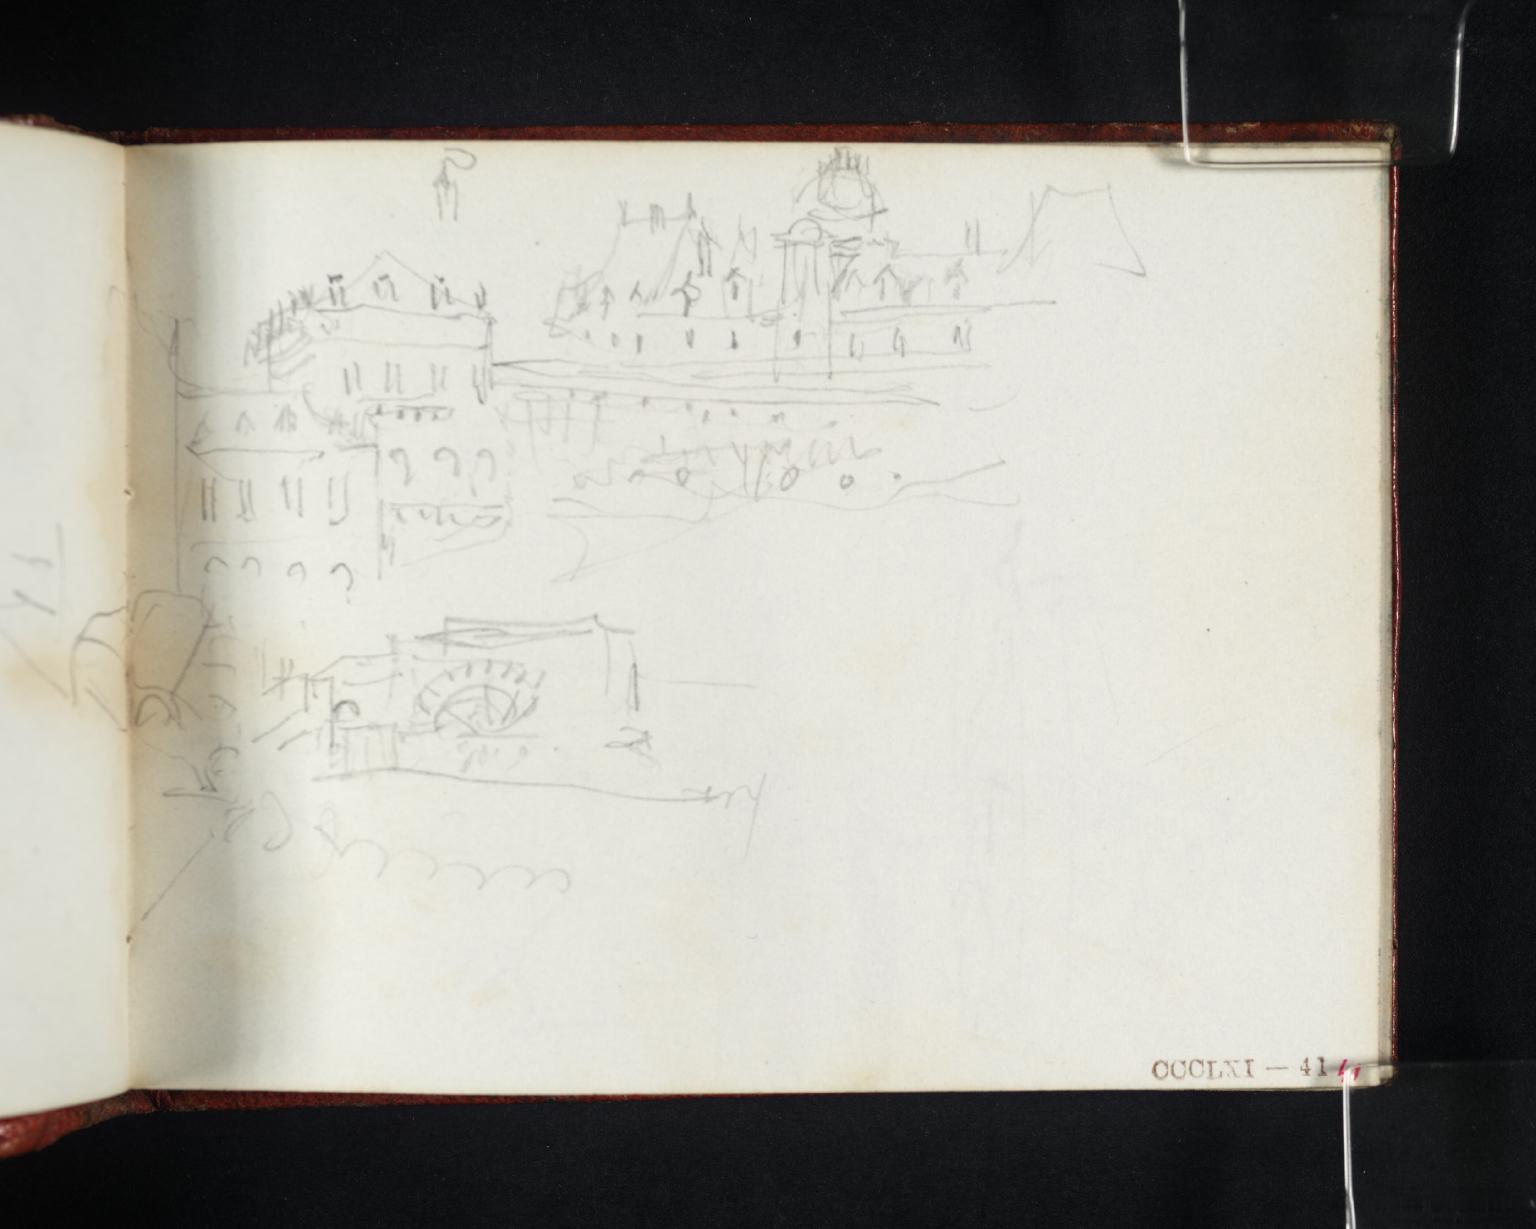 CCCLXI — 41